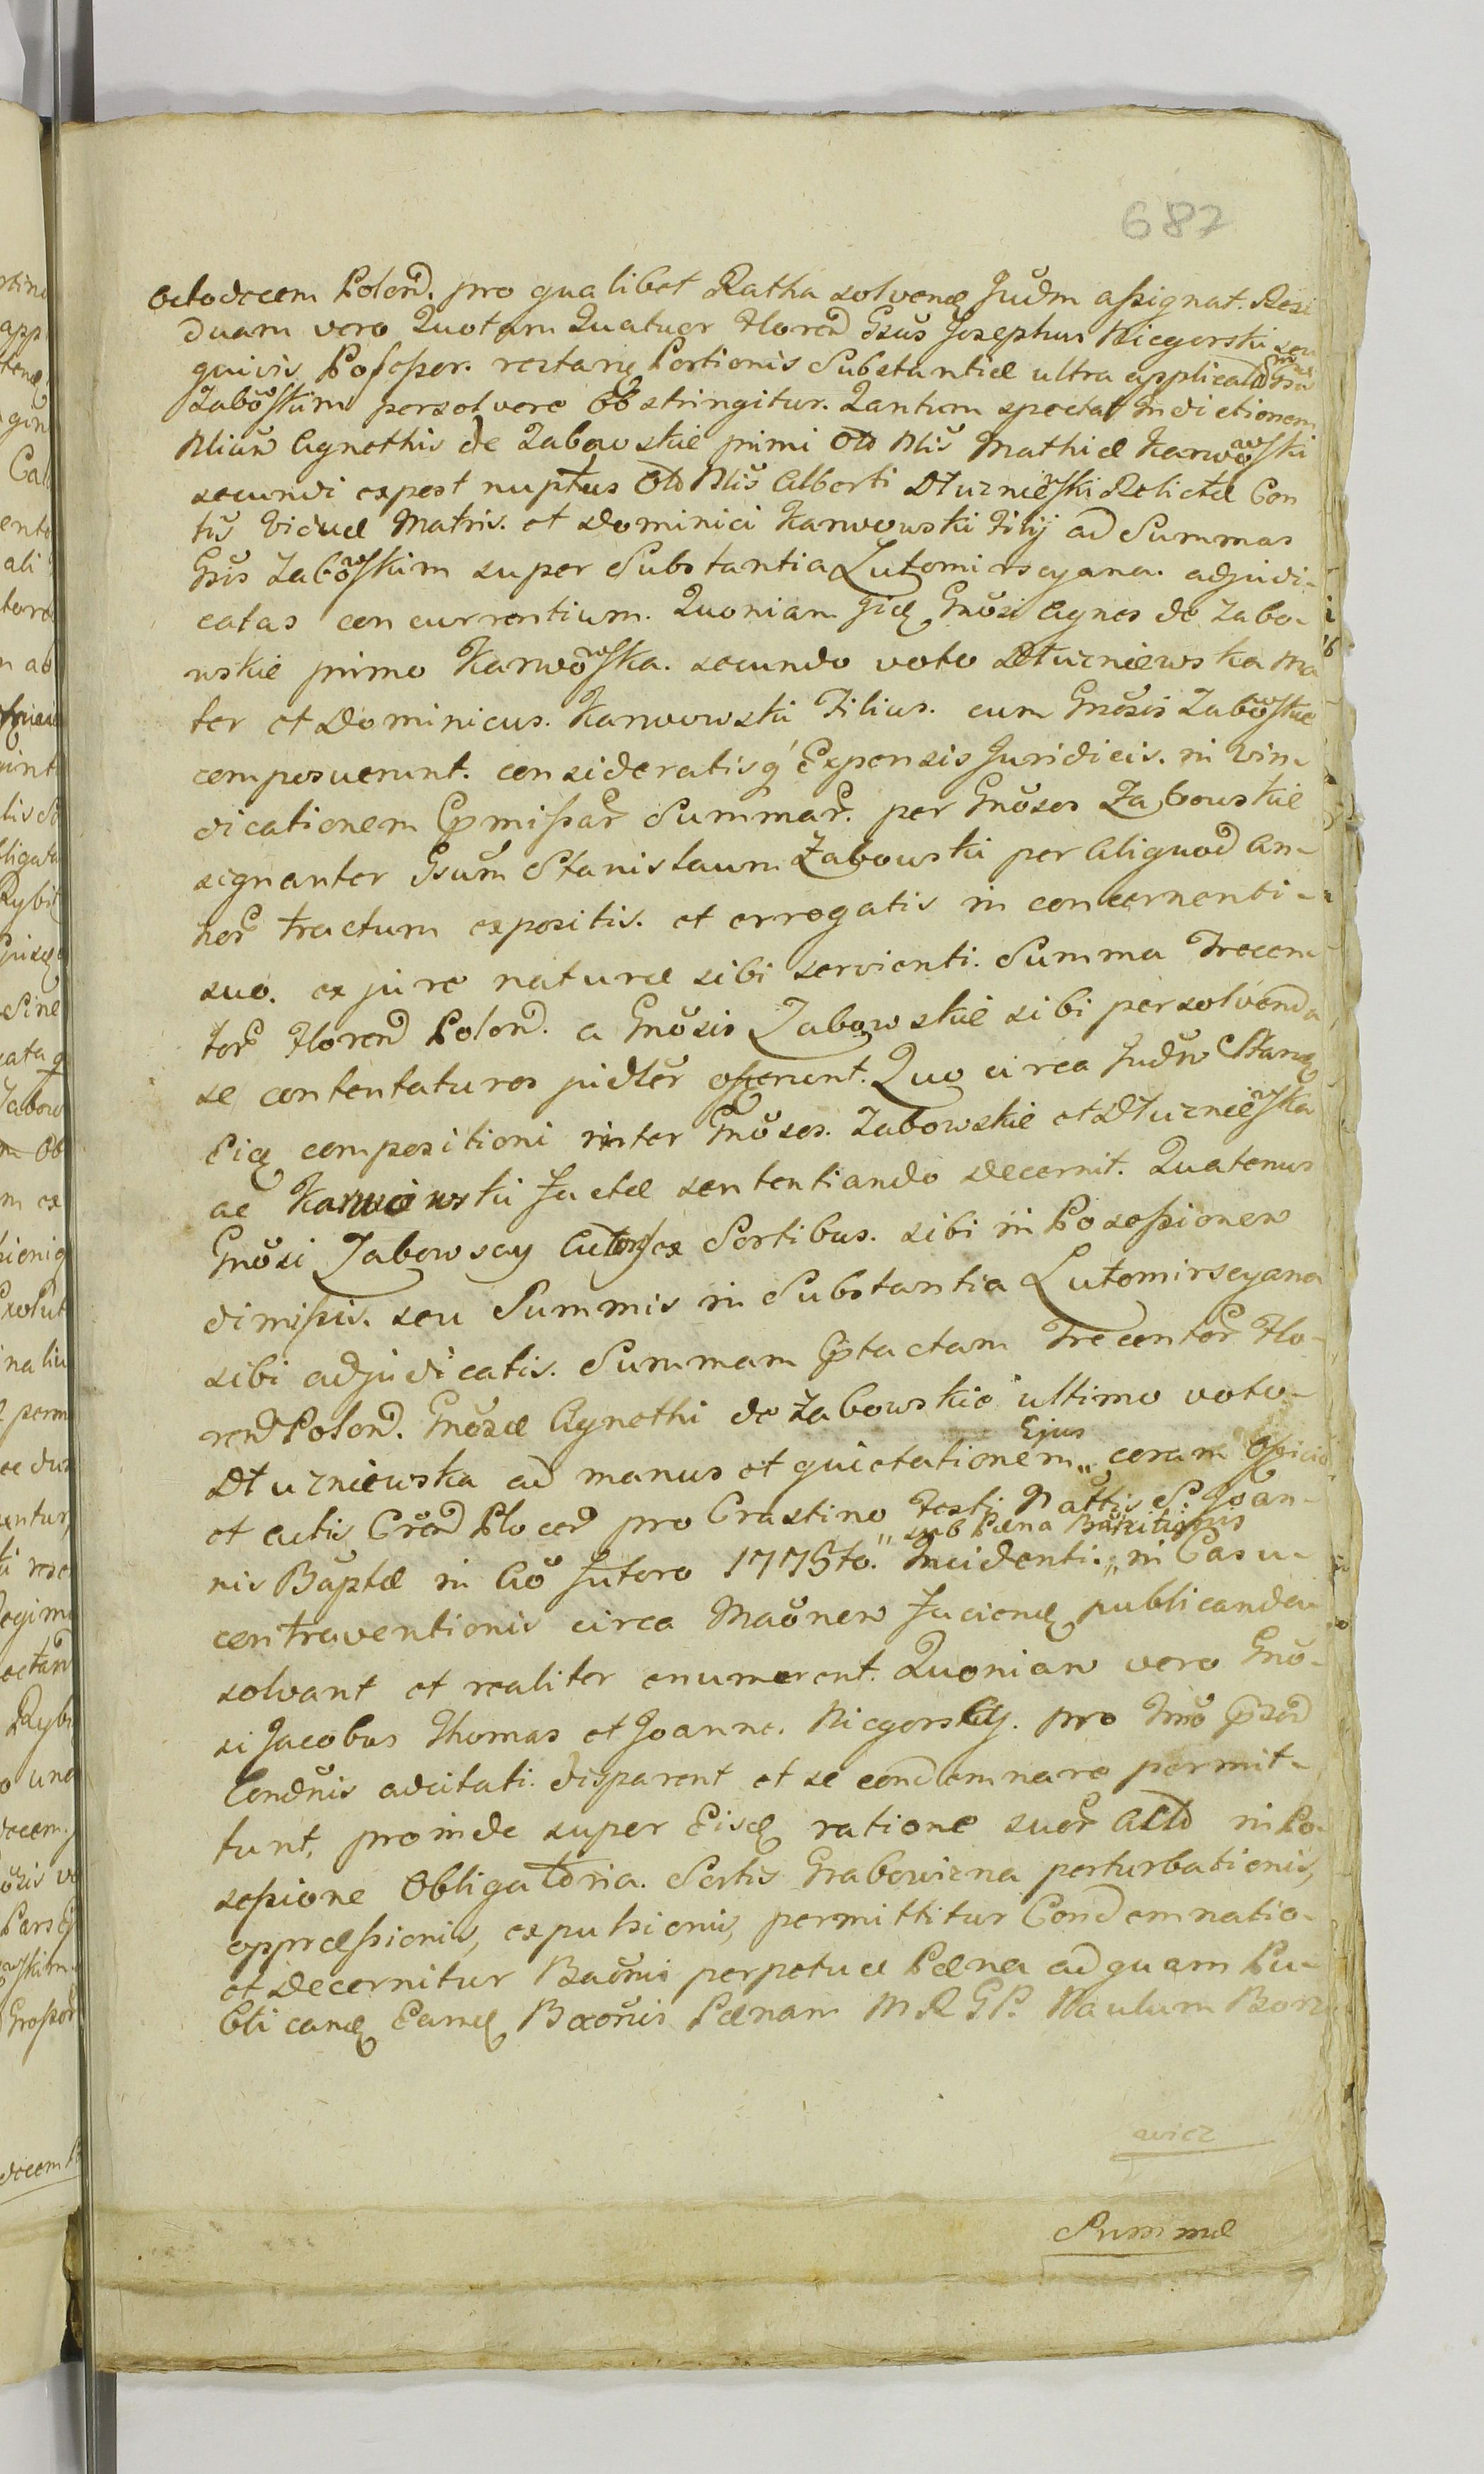 687
Octodecem Polon̄. pro qua libet Ratha solvenꝫ Judm aßignat. Resi
duam vero Quotam Quatuor Floren̄ Gsus Josephus Niegorski seu
quivis Poseßor. restanꝫ Portionis Substantiæ ultra applicatā
Zabowskim persolvere Obstringitur. Qantum spectat Indictionem
Mliũm Agnethis de Zabowskie primi Oto Mlis Mathiæ Karwowski
secundi expost nuptus Oto Mlis Alberti Dłuzniewski Relictæ Con
tis Viduæ Matris. et Dominici Karwowski Filij ad Summas
Gsis Zabowskim super Substantia Lutomirscyana. adjudi-
catas concurrentium. Quoniam Jidꝫ Gnosi Agnes de Zabo-
wskie primo Karwowska. secundo voto Dłuzniewska Ma
ter et Dominicus. Karwowski Filius. cum Gnosis Zabowskie
composuerunt. consideratisq́ Expensis Juridicis. in vin-
dicationem Pmißar̄ Summar̄. per Gnosos Zabowskie
signanter Gsum Stanislaum Zabowski per Aliquod An-
nor̄ tractum expositis. et errogatis in concernenti-
suo. ex jure naturæ sibi servienti. Summa Trecen-
tor̄ Floren̄ Polon̄. a Gnosis Zabowskie sibi persolvenda
se contentaturos judler offerunt. Quo circa Judm Stanꝫ
Eidꝫ compositioni inter Gnosos. Zabowskie et Dłuzniewska
ac Karwowski Factæ sententiando decernit. Quatenus
Gnosi Zabowscy Actores ex Sortibus. sibi in Poseßionem
dimißis. seu Summis in Substantia Lutomirscyana
sibi adjudicatis. Summam Ptactam Trecentor̄ Flo-
ren̄ Polon̄. Gnosæ Agnethi de Zabowskie ultimo voto
Dłuzniewska ad manus et quietationem „ Ejus coram Officio
et Actis Cren̄ Plocen̄ pro Crastino Festi Nattis S. Joan-
nis Baptæ in Ao futuro 1775to. Incidenti. „ sub Pæna Bannitionis in Casu-
contraventionis circa Maonem Faciendꝫ publicandæ
solvant et realiter enumerent. Quoniam vero Gno-
si Jacobus Thomas et Joannes. Niegorscy. pro Tmo Psen̄
Condnis adcitati. disparent et se condemnare permit-
tunt, proinde super Eisdꝫ ratione suor̄ Acto in Po-
seßione Obligatoria. Sortis Grabowizna perturbationis,
oppræßionis, expulsionis, permittitur Condemnatio-
et decernitur Baonis perpetuæ Pæna ad quam Pu-
blicandꝫ Eandꝫ Baonis Pænam M R G P. Paulum Borz
awicz
Summæ